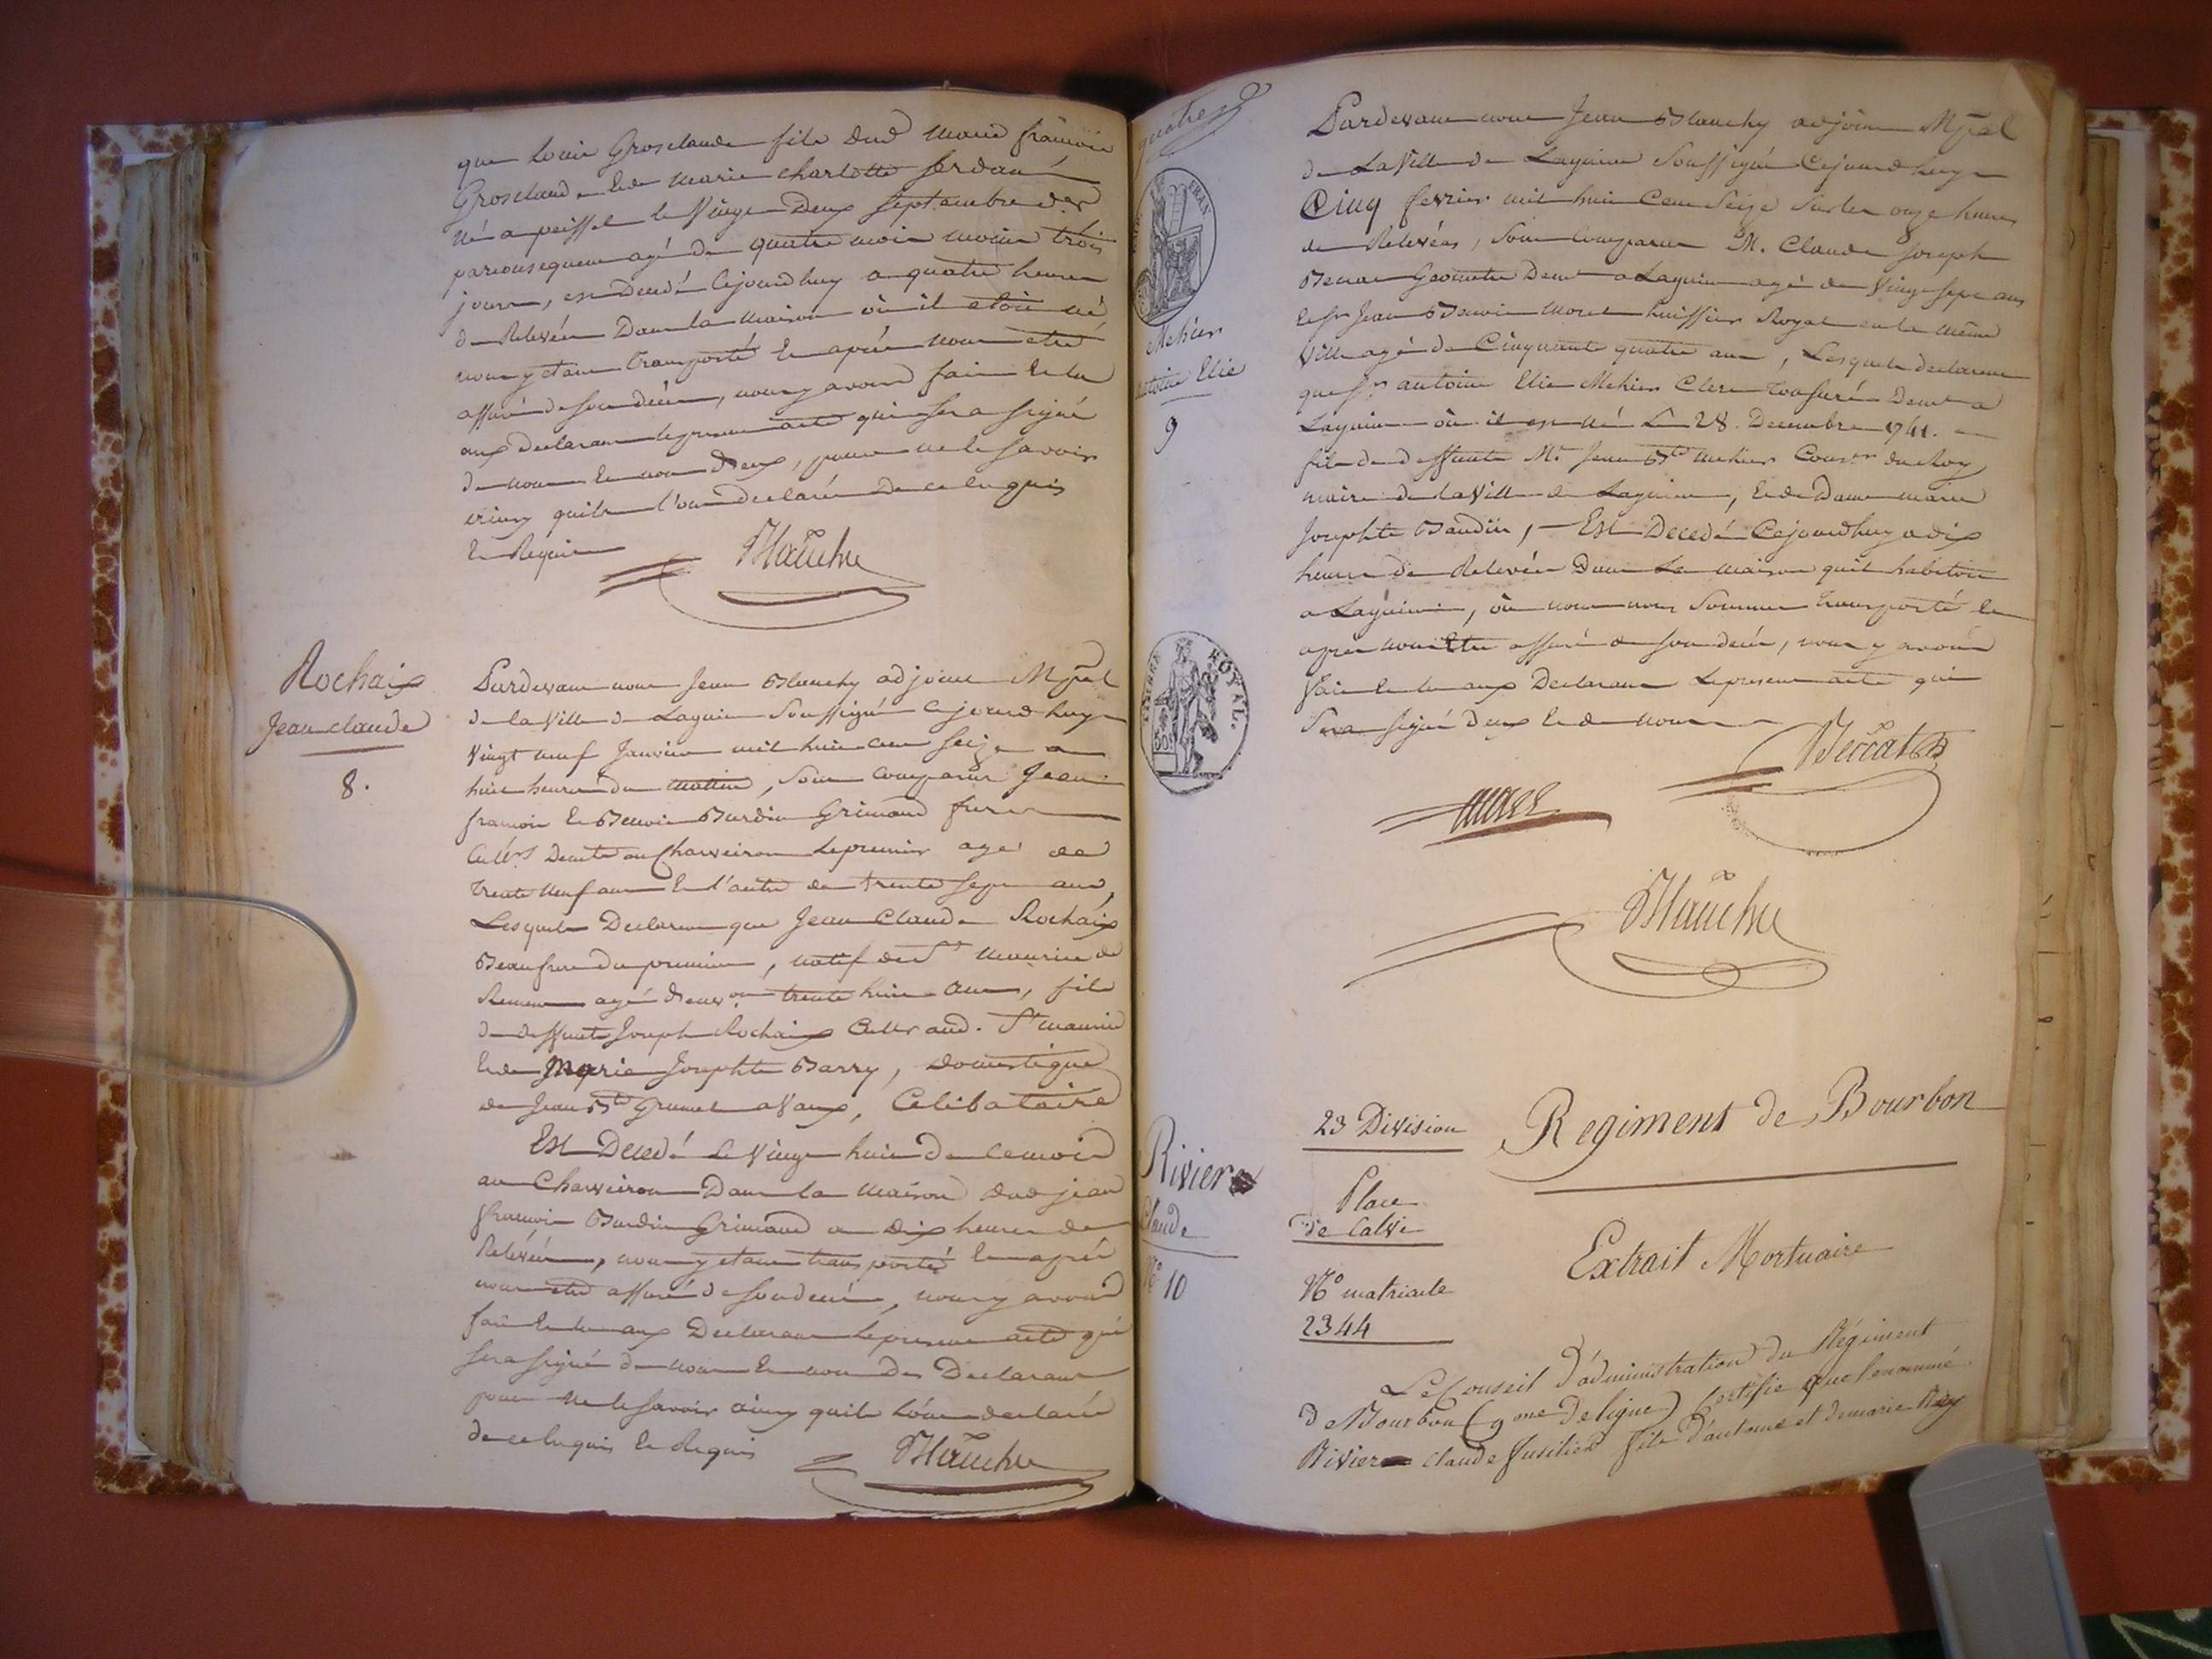 que Louis Grosclaude fils dud Marie françois
Grosclaude et de Marie charlotte
né a peissel le Vingt Deux Septembre der
parconsequent agé de quatre mois moins trois
jours, est Decedé Cejourdhuy a quatre heures
de Relevée Dans la maison où il etoit né
nous y etant transporté et après nous etre
assuré de son decès, nous y avons fait et lu
aux declarans le present acte qui sera signé
de nous et non d'eux, pour ne le savoir
ainsy quils l'ont declaré de ce enquis
et Requis
Blanche
Rochaix
Jean claude
8.
Pardevant nous Jean Blanchy adjoint Mpal
de la Ville de Lagnieu Soussigné cejourd huy
Vingt neuf Janvier mil huit cent seize a
huit heures du mattin, sont comparus Jean
francois et Benoit Burdin Grimaud freres
Cultrs Demts au Charveiron le premier agé de
trente neuf ans et l'autre de trente sept ans,
Lesquels Declarent que Jean Claude Rochaix
Beaufrere du premier, natif de St Maurice de
Remens agé d'environ trente huit ans, fils
de deffunt Joseph Rochaix Cultr aud. St maurice
et de Marie Josephte Barry, domestique
de Jean Bte Grumet a Vaux, Celibataire
Est Decedé le Vingt huit de ce mois
au Charveiron Dans la maison dud jean
francois Burdin Grimaud a dix heures de
Relevée, nous y etant transporté et après
nous etre assuré de son decès, nous y avons
fait et lu aux Declarans le present acte qui
sera signé de nous et non des Declarans
pour ne le savoir ainsy quils l'ont declaré
de ce enquis et Requis
Blanche
quatre
FRAN
Mehier
Antoine Elie
9
TIMBRE ROYAL.
Pardevant nous Jean Blanchy adjoint Mpal
de La Ville de Lagnieu Soussigné Cejourdhuy
Cinq fevrier mil huit Cent Seize sur les onze heures
de Relevées, sont comparus M. Claude Joseph
Geometre Demt a Lagnieu agé de Vingt sept ans
et sr Jean Benoit Morel huissier Royal en la même
Ville agé de Cinquante quatre ans, Lesquels declarent
que sr antoine Elie Mehier Clerc Tonsuré Demt a
Lagnieu où il est né Le 28. Decembre 1741.
fils de deffunts Mr Jean Bte Mehier Conser du Roy
maire de la Ville de Lagnieu, et de Dame marie
Josephte Baudin, Est Decedé Cejourdhuy a dix
heures de Relevée Dans La maison quil habitoit
a Lagnieu, où nous nous Sommes transporté et
apres nous etre assuré de son decès, nous y avons
fait et lu aux Declarans Le present acte qui
Sera signé deux et de nous
Morel
Blanche
Riviere
Claude
N° 10
23 Division
Regiment de Bourbon
Place
de Calvi
N° matricule
2344
Extrait Mortuaire
Le Conseil D'administration du Régiment
de Bourbon (9me De ligne) Certifie que le nommé
Riviere claude fusilier fils d'antoine et de marie Rey